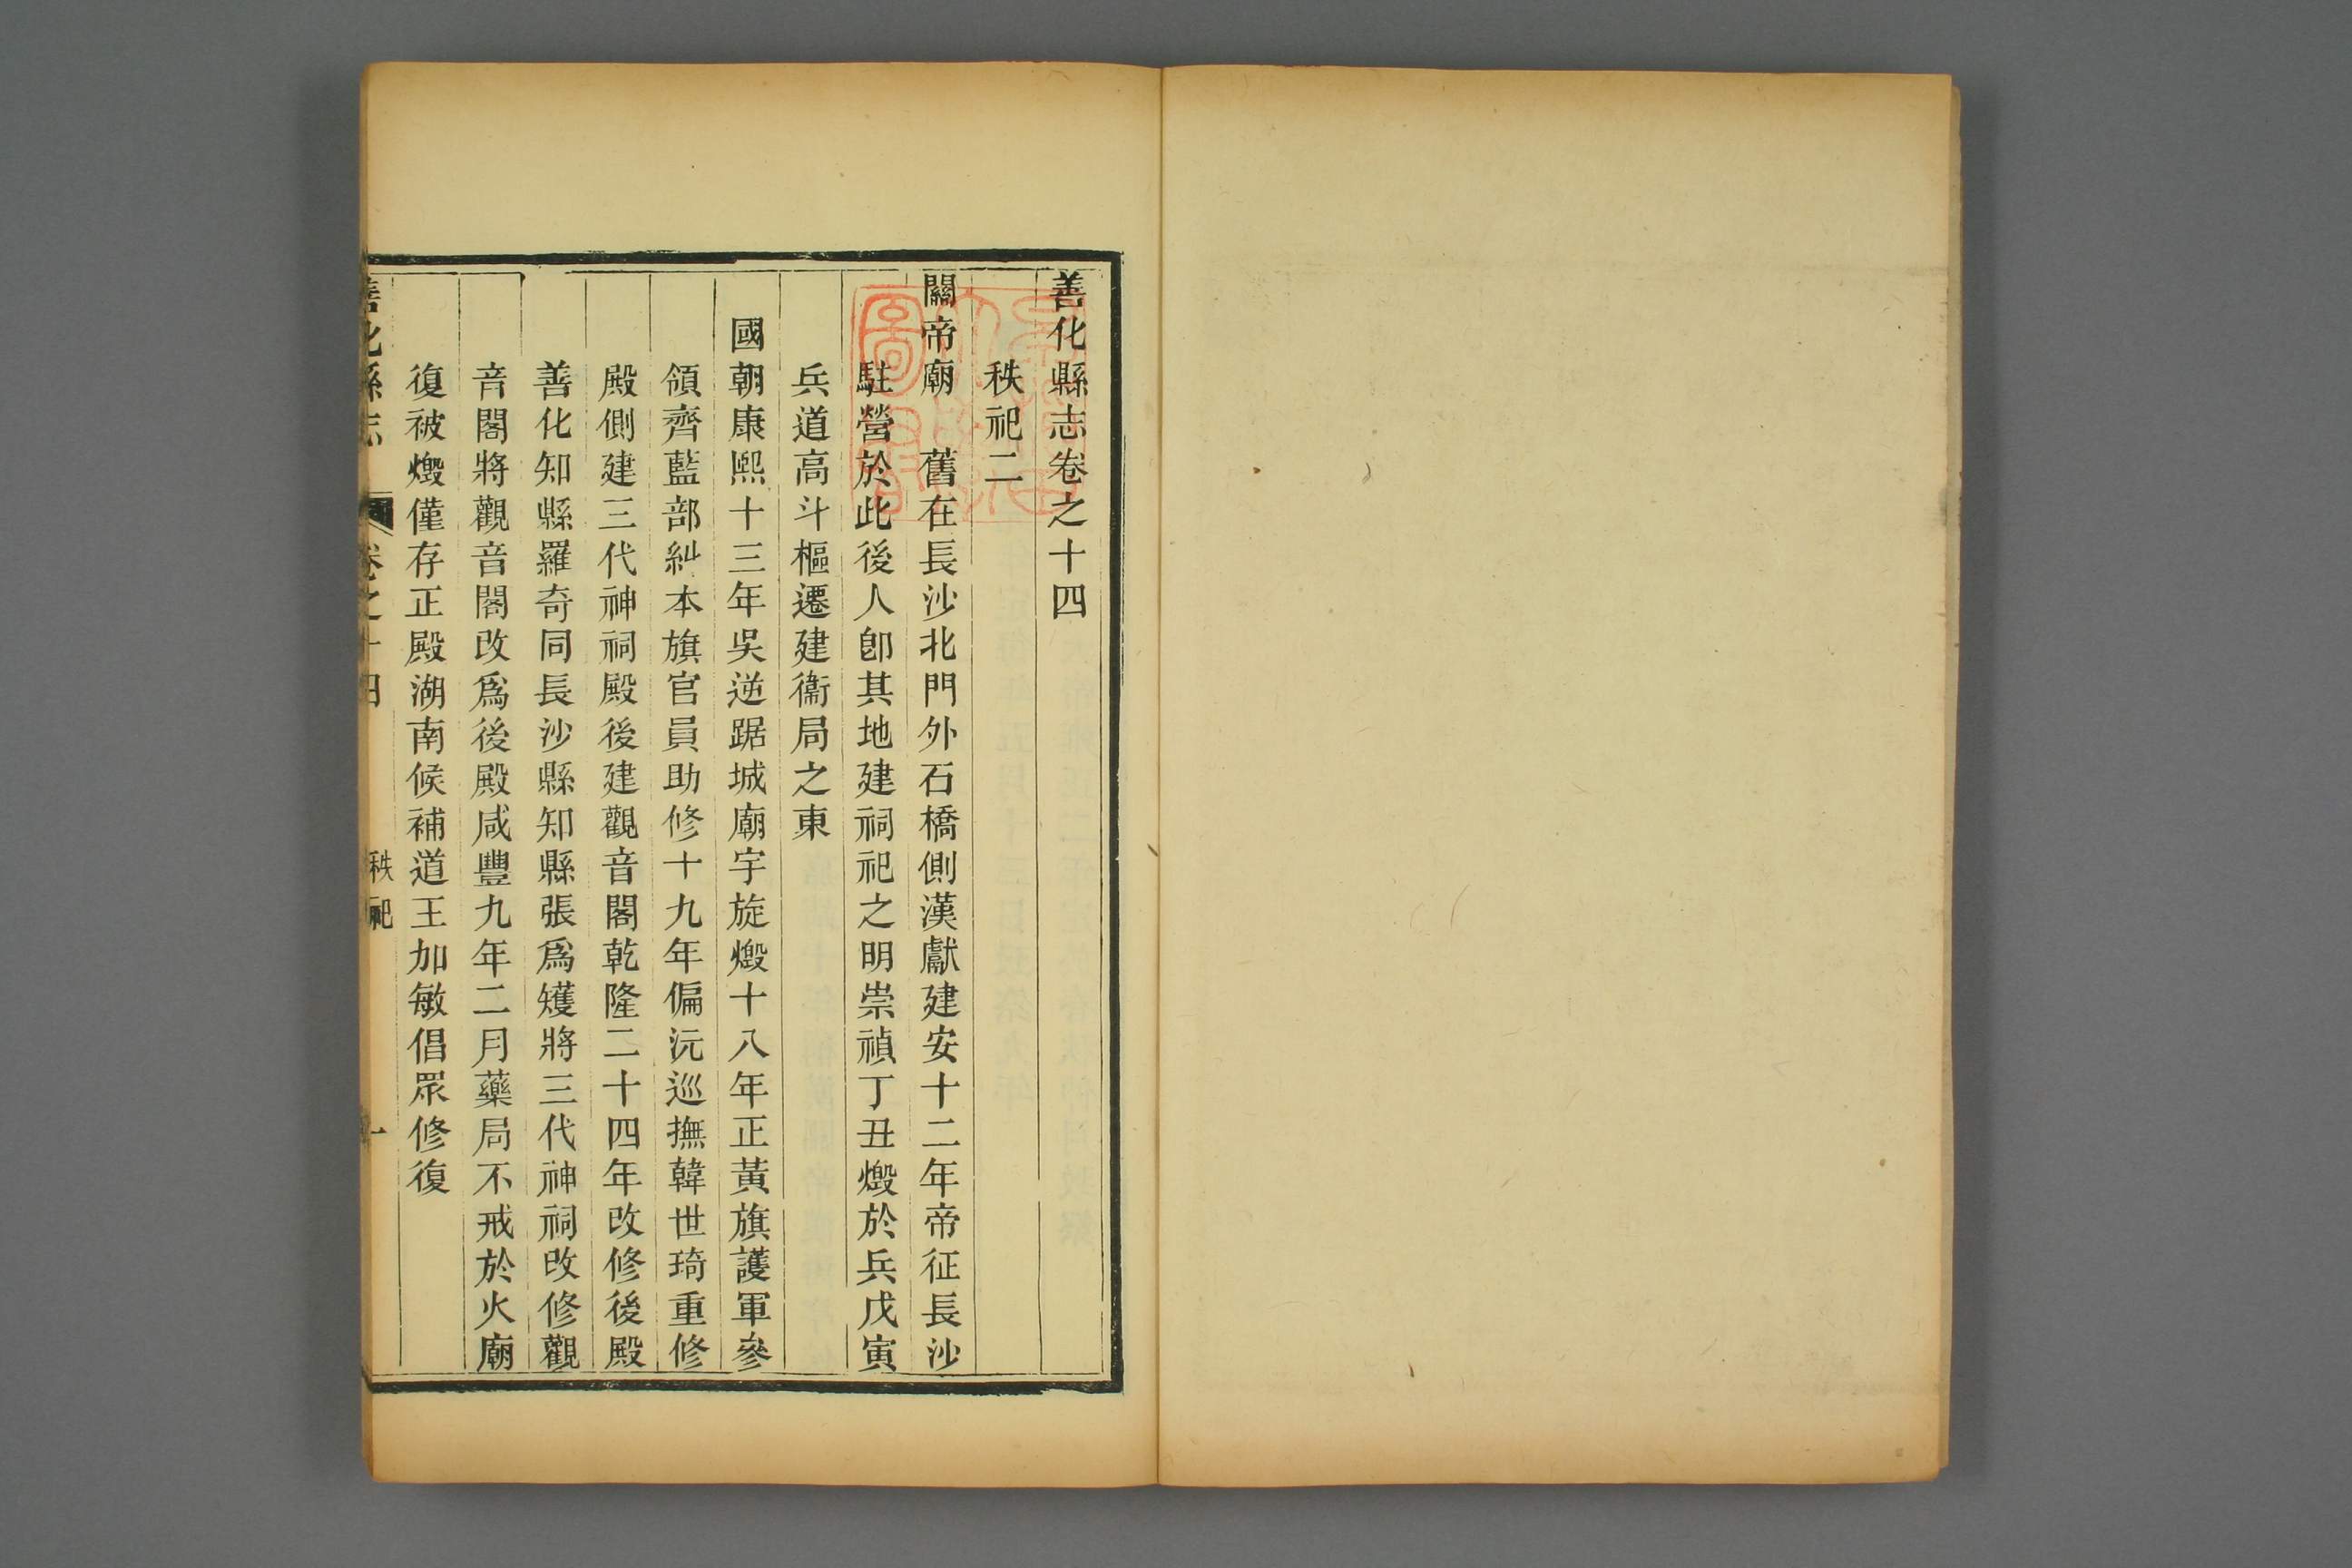 善化縣志卷之十四
秩祀二
關帝廟　舊在長沙北門外石橋側漢獻建安十二年帝征長沙
駐營於此後人卽其地建祠祀之明崇禎丁丑燬於兵戊寅
兵道高斗樞遷建衞局之東
國朝康熙十三年吳逆踞城廟宇旋燬十八年正黃旗護軍參
領齊藍部糾本旗官員助修十九年偏沅巡撫韓世琦重修
殿側建三代神祠殿後建觀音閣乾隆二十四年改修後殿
善化知縣羅奇同長沙縣知縣張爲矱將三代神祠改修觀
音閣將觀音閣改爲後殿咸豐九年二月藥局不戒於火廟
復被燬僅存正殿湖南候補道王加敏倡眾修復
善化縣志　卷之十四　秩祀　一